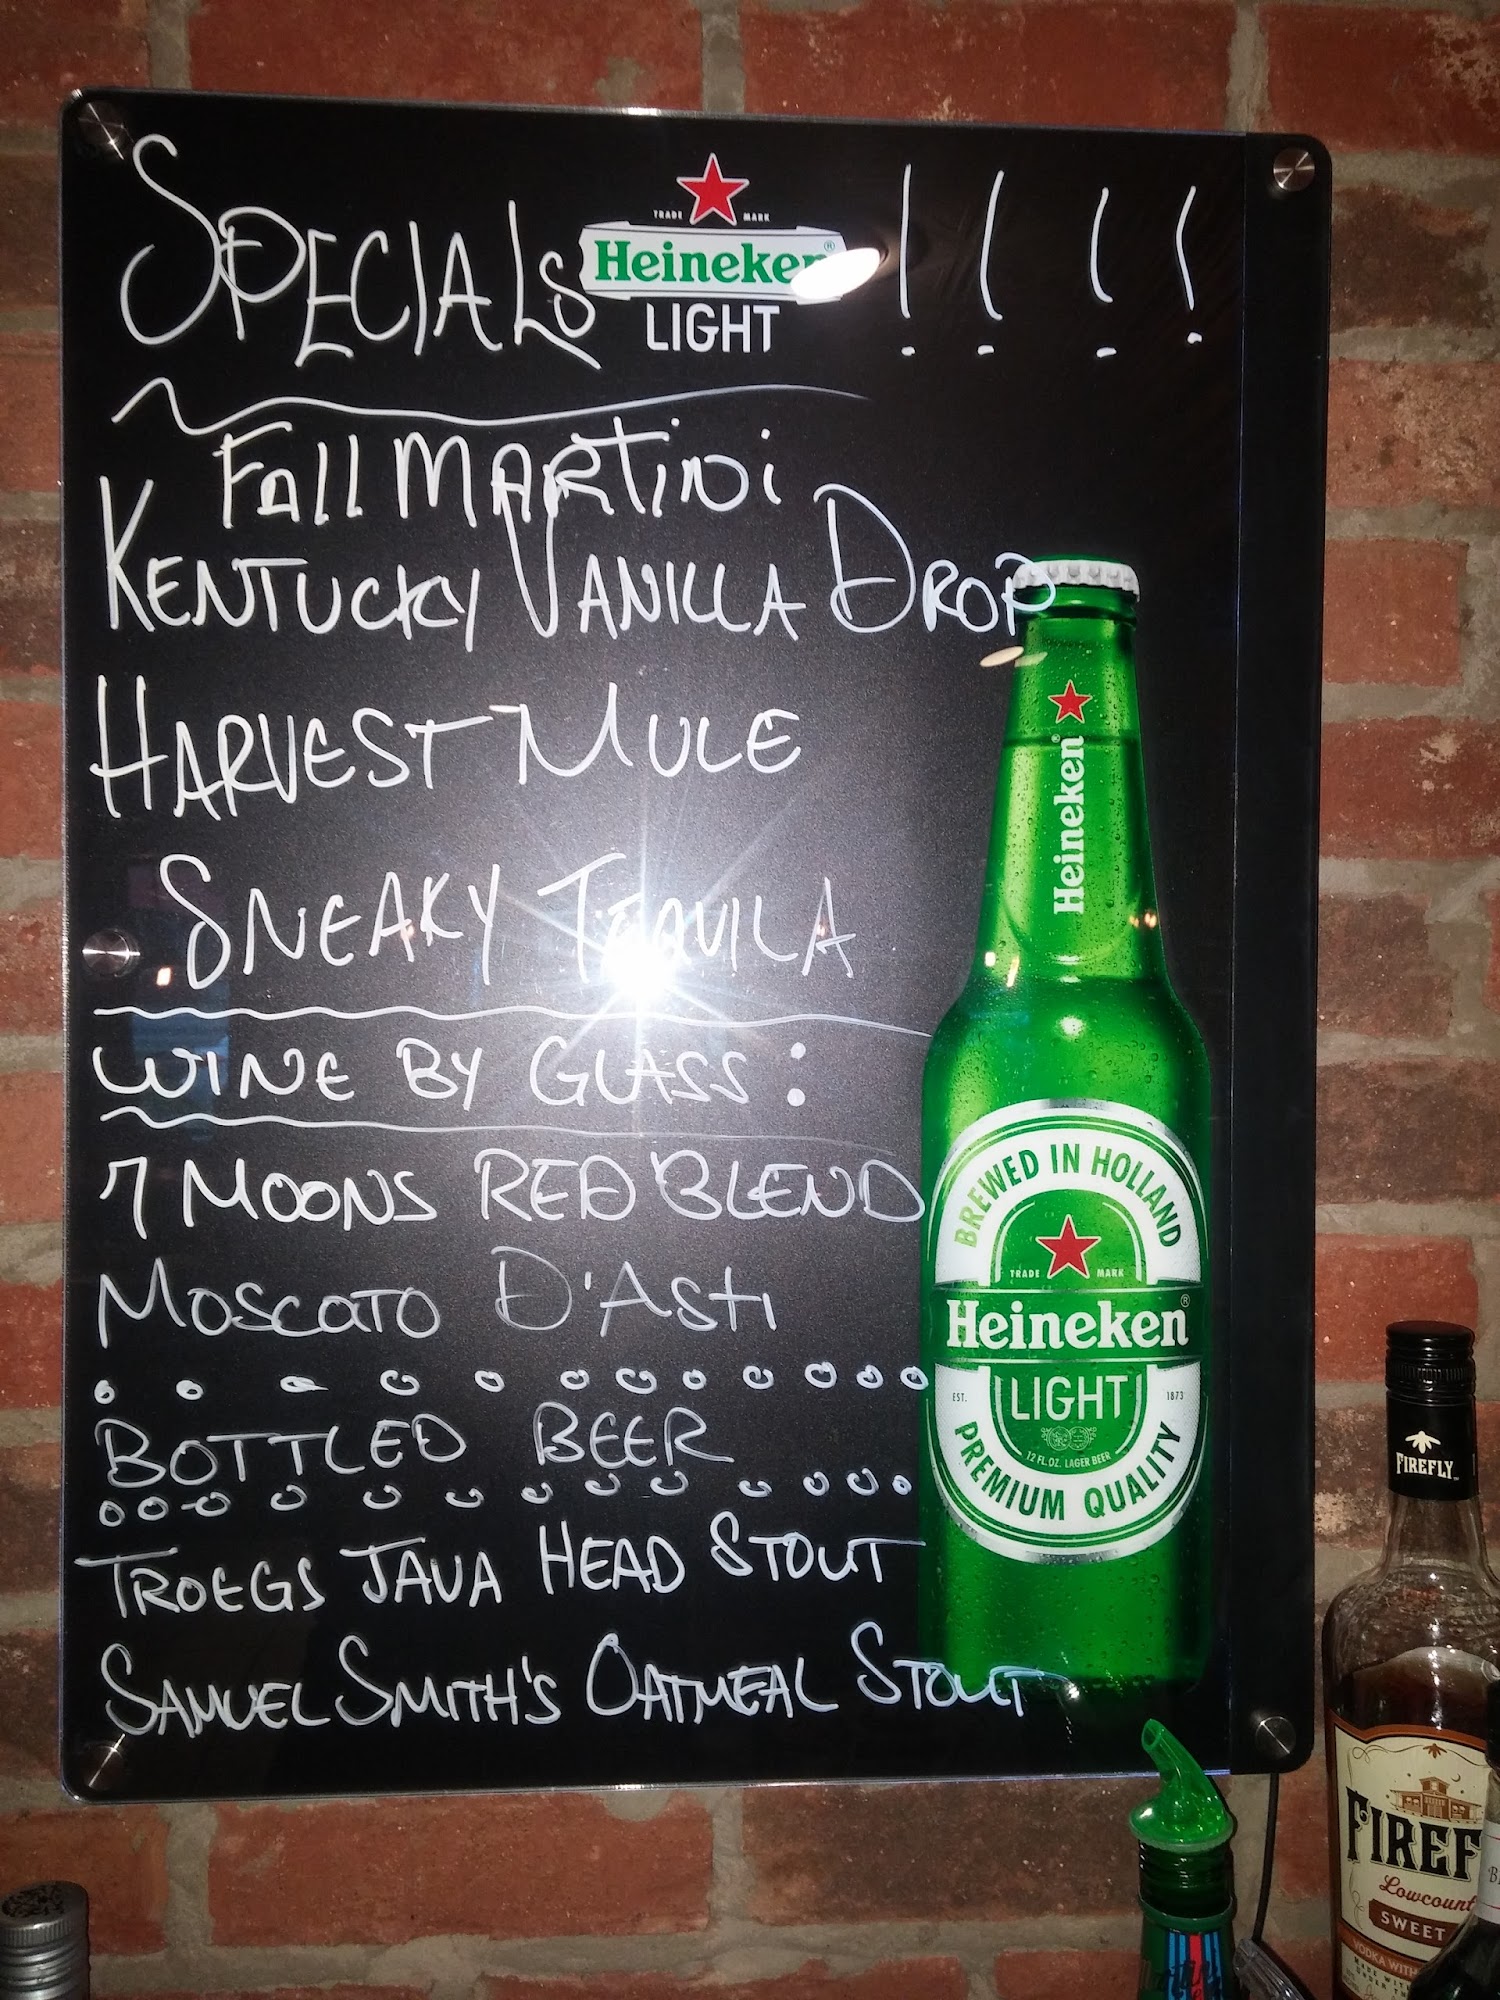 SPECIALS !!!!
TRADE MARK
Heineken®
LIGHT
Fall MARTINI
KENTUCKY VANILLA DROP
HARVEST MULE
SNEAKY TEQUILA
WINE BY GLASS:
7 MOONS RED BLEND
MOSCATO D'ASTI
BOTTLED BEER
TROEGS JAVA HEAD STOUT
SAMUEL SMITH'S OATMEAL STOUT
Heineken®
BREWED IN HOLLAND
TRADE MARK
Heineken®
EST. LIGHT 1873
12 FL. OZ. LAGER BEER
PREMIUM QUALITY
FIREFLY
FIREF
Lowcount
SWEET
VODKA WITH